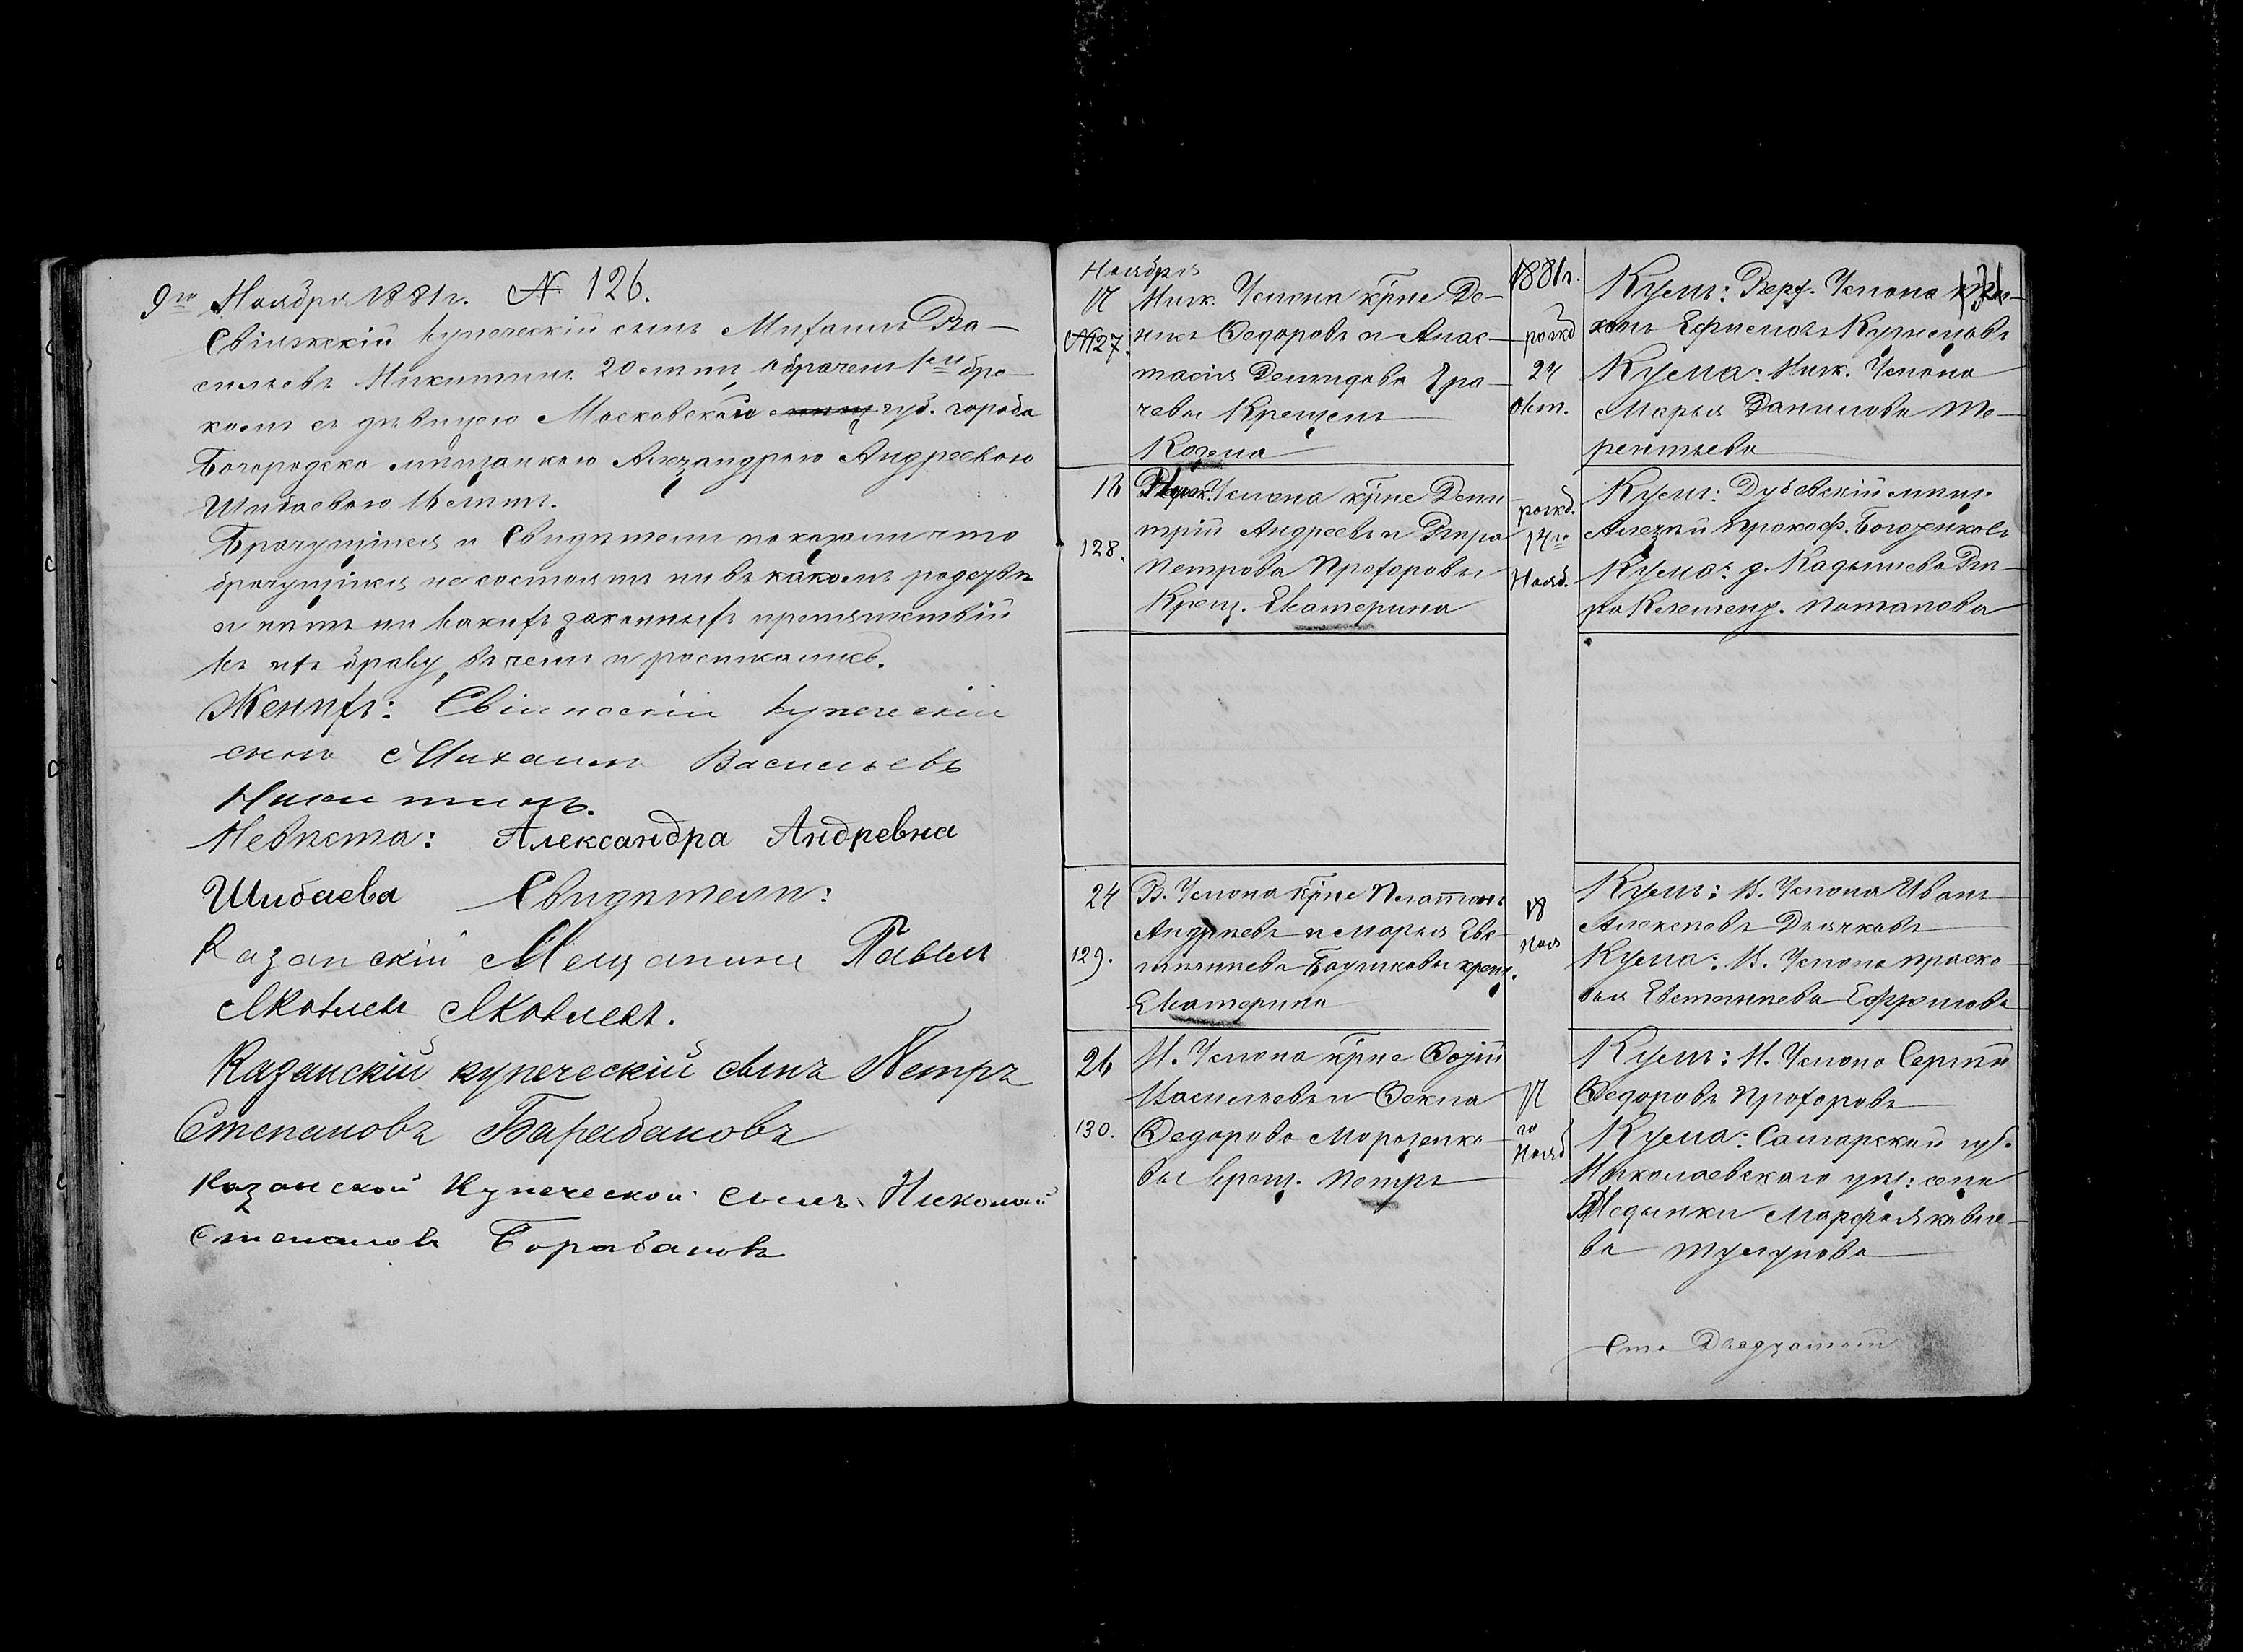 9го Ноября 1881г. № 126.
Свіяжскій купеческій сынъ Михаилъ Ва-
сильевъ Никитинъ 20 лѣтъ, обрачен 1мъ бра-
комъ съ дѣвицею Московской губ. города
Богородска мѣщанкою Александрою Андреевою
Шибаевою лѣтъ.
Брачущіися и Свидѣтели показали что
брачущіися не состоятъ ни въ какомъ родствѣ
и нѣтъ ни какихъ законныхъ препятствій
къ ихъ браку, въ чемъ и росписались.
Женихъ: купеческій
сынъ Михаилъ Васильевъ
Никитинъ.
Невѣста: Александра Андревна
Шибаева Свидѣтели:
Казанскій Мещанинъ Павелъ
Яковлевъ Яковлевъ.
Казанскій купеческій сынъ Петръ
Степановъ Барабановъ
Казанской Купеческой сынъ Николай
Степановъ Борабановъ
Ноября 1881г.
17
№127.
Ниж. Услона крне Де-
нисъ Федоровъ и Анас-
тасія Демидова Гра-
чевы Крещенъ
Козма
рожд
24
Окт.
Кумъ: Верх. Услона
Ефимовъ Кузнецовъ
Кума: Ниж. Услона
Марья Данилова Те-
рентьева
18
128.
Услона крне Дми-
трій Андреевъ и Вѣра
Петрова Прохоровы
Крещ. Екатерина
рожд.
14го
Нояб.
Кумъ: Дубовскій мѣщ.
Алексѣй Прокоф.
Кума: д. Кадышева Вѣ-
ра Клемент. Потапова
24
129.
В. Услона крне Платонъ
Андреевъ и Марья Евс-
тигнеева крещ.
Екатерина
18
Ноя
Кумъ: В. Услона Иванъ
Алексеевъ Дьячковъ
Кума: В. Услона Праско-
вья Евстигнеева Ефремова
26
130.
Н. Услона крне
Васильевъ и Фекла
Федорова Морозенко-
вы Крещ. Петръ
17
го
Нояб
Кумъ: Н. Услона Сергѣй
Федоровъ Прохоровъ
Кума: Самарской губ.
Николаевскаго уѣз: села
Марфа Яковле-
ва
Сто Двадцатый